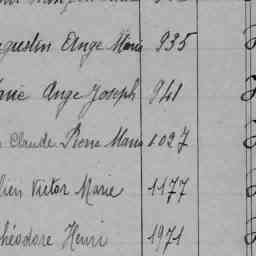 Ange Marie 935
Ange Joseph 941
Claude Pierre Marie 1027
Victor Marie 1177
Théodore Henri 1971